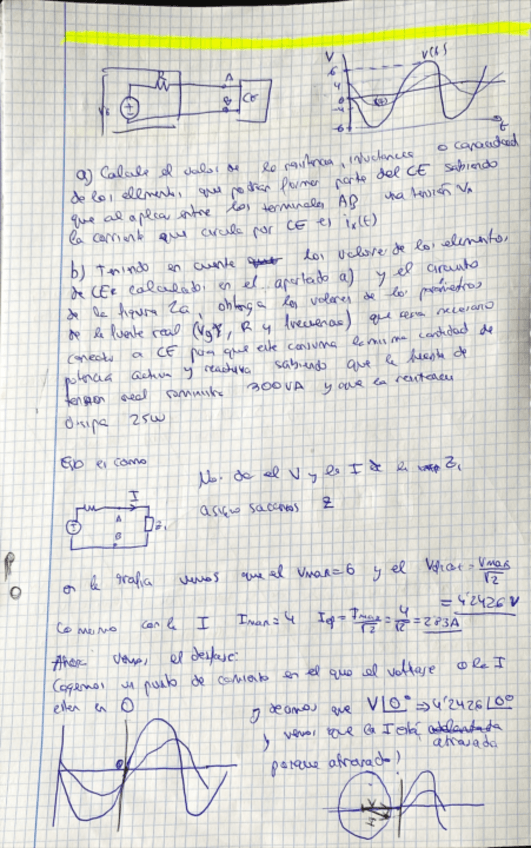 R
A
B
CE
V
6
4
0
-4
-6
v(t)
t
a) Calcule el valor de la resistencia, inductancia o capacidad
de los elementos que podrían formar parte del CE sabiendo
que al aplicar entre los terminales AB una tensión
la corriente que circula por CE es i (t)
b) Teniendo en cuenta los valores de los elementos
de CE calculados en el apartado a) y el circuito
de la figura 2a, obtenga los valores de los parámetros
de la fuente real (Vg, R y frecuencia) que sería necesario
conectar a CE para que este consuma la misma cantidad de
potencia activa y reactiva sabiendo que la fuente de
tensión real suministra 300VA y que la resistencia
disipa 25W
Esto es como
I
A
B
Z1
Nos da el V y la I de la Z1
sacamos Z
en la grafia vemos que el Vmax=6 y el = Vmax/√2
= 4'2426 V
Lo mismo con la I Imax=4 Ief = Imax/√2 = 4/√2 = 2'83A
Ahora vemos el desfase
Cogemos un punto de comiento en el que el voltaje o la I
esten en 0
y decimos que V|0° ⇒ 4'2426|0°
y vemos que la I está adelantada
atrasada
porque atrasado)
0
V
I